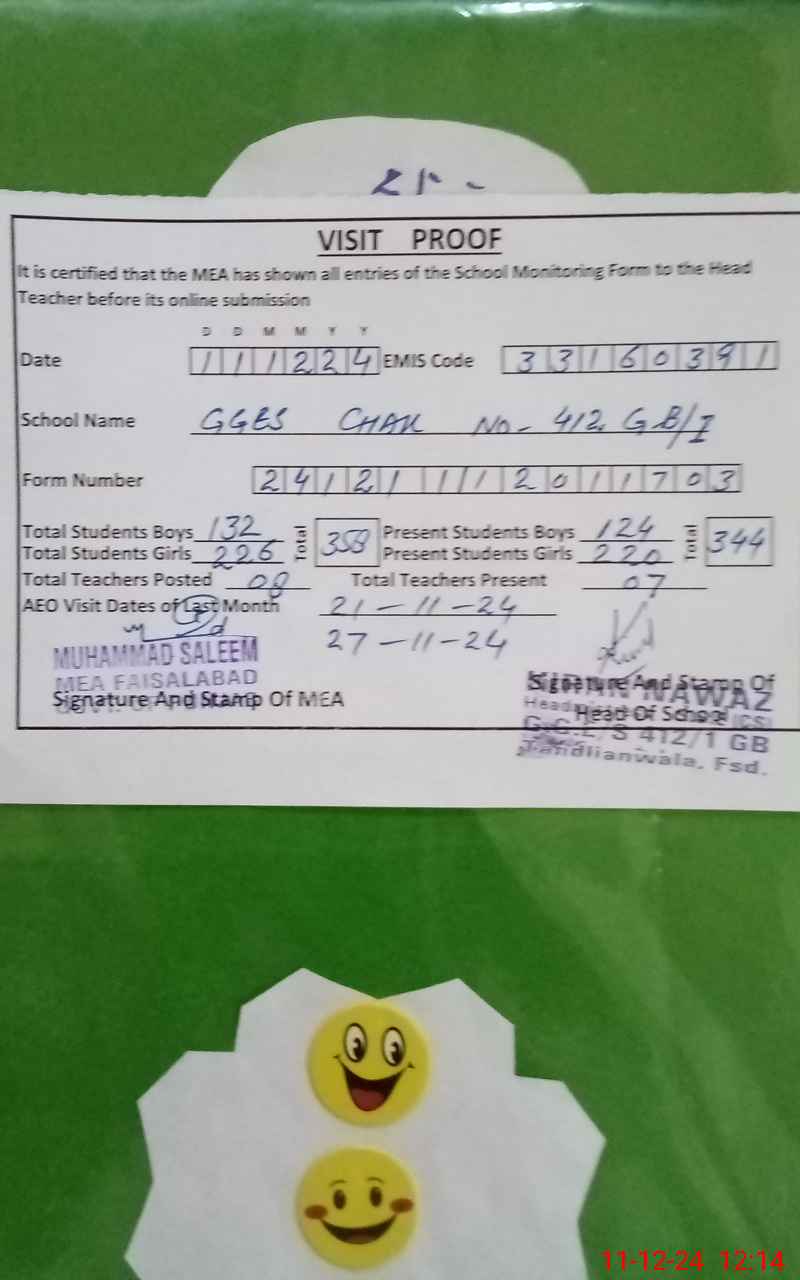 VISIT PROOF
It is certified that the MEA has shown all entries of the School Monitoring Form to the Head
Teacher before its online submission
D D M M Y Y
Date 111224 EMIS Code 33160391
School Name GGES CHAK NO- 412 GB/I
Form Number 24121 1112011703
Total Students Boys 132 Total 358 Present Students Boys 124 Total 344
Total Students Girls 226 Present Students Girls 220
Total Teachers Posted 08 Total Teachers Present 07
AEO Visit Dates of Last Month 21-11-24
27-11-24
MUHAMMAD SALEEM
MEA FAISALABAD
Signature And Stamp Of MEA
Signature And Stamp Of
NAWAZ
Head Of School
412/1 GB
Tandlianwala, Fsd.
11-12-24 12:14